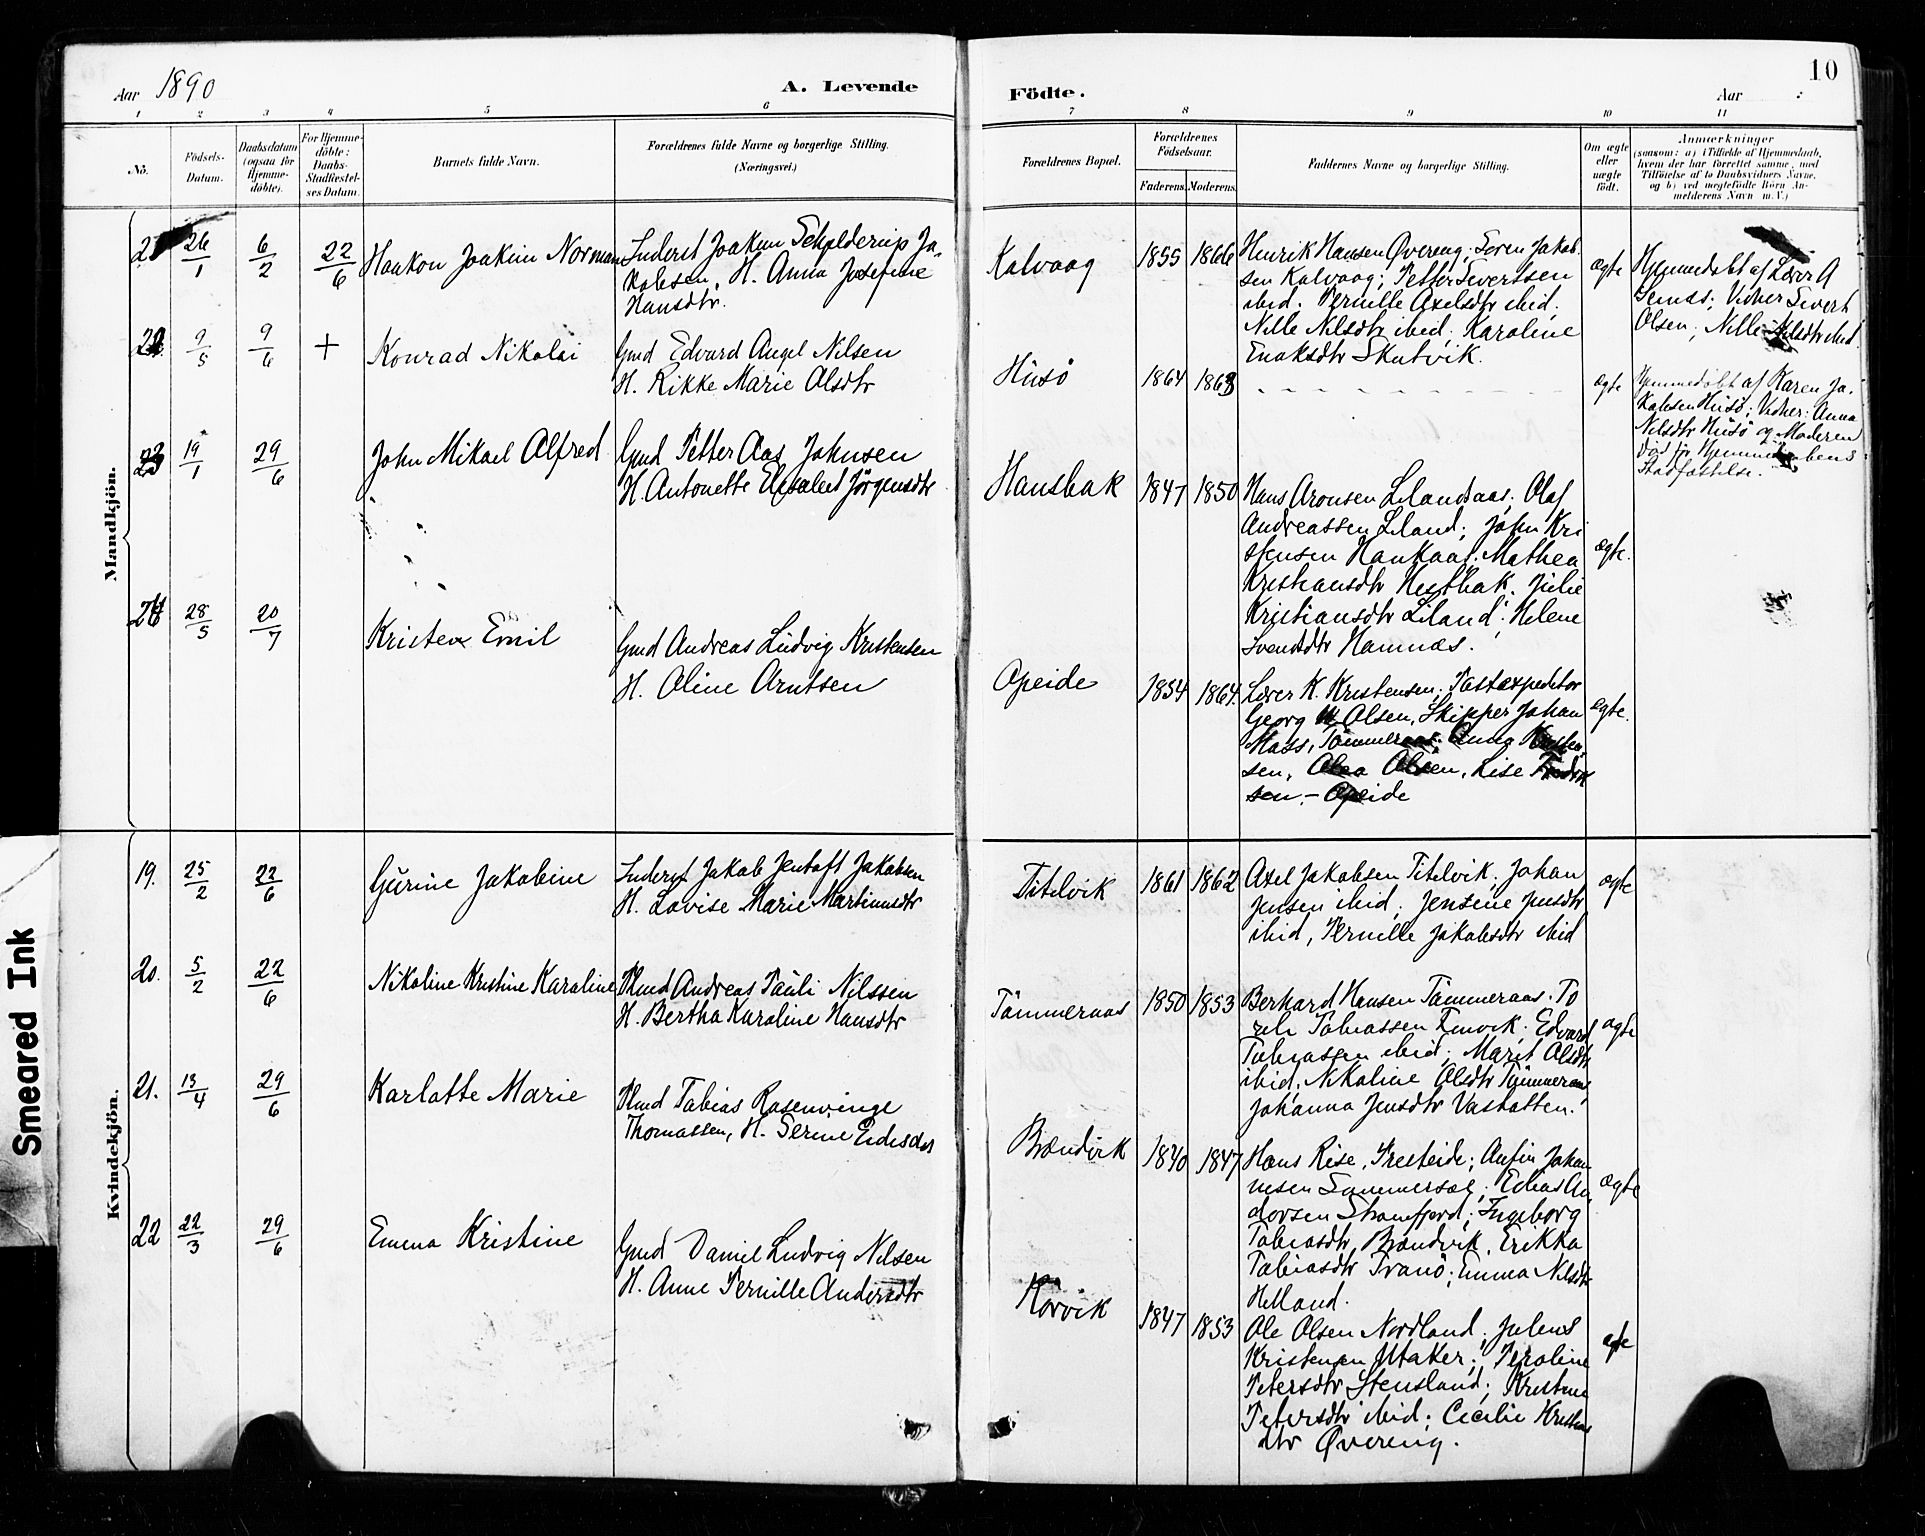 Aar 1890
A. Levende
Födte.
Aar :
10
1 2 3 4 5 6 7 8 9 10 11
No.
Födsels-
Datum.
Daabsdatum
(ogsaa for
Hjemme-
döbte).
For Hjemme-
döbte:
Daabs-
Stadfæstel-
ses Datum.
Barnets fulde Navn.
Forældrenes fulde Navne og borgerlige Stilling.
(Næringsvei.)
Forældrenes Bopæl.
Forældrenes
Födselsaar.
Faderens. Moderens.
Faddernes Navne og borgerlige Stilling.
Om ægte
eller
uægte
födt.
Anmærkninger
(saasom: a) i Tilfælde af Hjemmedaab,
hvem der har forrettet samme, med
Tilföielse af to Daabsvidners Navne,
og b) ved uægtefödte Börn An-
melderens Navn m.V.)
Mandkjön.
21 26/1 6/2 22/6 Haakon Joakim Norman
Inderst Joakim Schjelderup Ja-
kobsen, H. Anna Josefine
Hansdtr.
Kalvaag 1855 1866
Henrik Hansen Øvereng; Søren Jakob-
sen Kalvaag; Petter Sivertsen
ibid. Pernille Axelsdtr ibid.
Nille Nilsdtr ibid; Karoline
Enoksdtr Skutvik.
ægte
Hjemmedøbt af Lærer A
Vidner Sivert
Olsen, Nille Nilsdtr ibid
22 9/5 9/6 + Konrad Nikolai
Gmd Edvard Angel Nilsen
H. Rikke Marie Olsdtr
Husö 1864 1863
ægte
Hjemmedøbt af Karen Ja-
kobsen Husö; Vidner: Anna
Nilsdtr Husö og Moderen
Död før Hjemmedaabens
Stadfæstelse.
23 19/1 29/6 John Mikael Alfred
Gmd Petter Aas Johnsen
H. Antonette Elisabet Jörgensdtr
Hansbak 1847 1850
Hans Aronsen Lilandsaas; Olaf
Andreassen Liland; John Kri
stensen Haukaas. Mathea
Kristiansdtr Hestbak. Julie
Kristiansdtr Liland; Helene
Svendsdtr Hamnæs.
ægte.
24 28/5 20/7 Kristen Emil
Gmd Andreas Ludvig Kristensen
H. Oline Arntsen
Opeide 1854 1864.
Lærer K. Kristensen; Postexpeditør
Georg Olsen, Skipper Johan
Hass, Tömmeraas; Anna Kristen
sen, Olea Olsen, Lise Fredrik
sen. - Opeide
ægte.
Kvindekjön.
19. 25/2 22/6 Gurine Jakobine
Inderst Jakob Jentoft Jakobsen
H. Lovise Marie Martinusdtr
Titelvik 1861 1862
Axel Jakobsen Titelvik, Johan
Jensen ibid; Jensine Jensdtr
ibid, Pernille Jakobsdtr ibid
ægte
20. 5/2 22/6 Nikoline Kristine Karoline
Hmd Andreas Pauli Nilssen
H. Bertha Karoline Hansdtr
Tömmeraas 1850 1853
Berhard Hansen Tömmeraas. To
Tobiassen Finvik; Edvard
Tobiassen ibid; Marit Olsdtr
ibid, Nikoline Olsdtr Tömmeraas
Johanna Jensdtr Vashatten.
ægte
21. 13/4 29/6 Karlotte Marie
Hmd Tobias Rosenvinge
Thomassen, H. Serine Eidisdtr
Brændvik 1840 1847
Hans Rise, Presteide; Anfin Johan
nesen Sommersæl; Edias An
dorsen Strømfjord; Ingeborg
Tobiasdtr, Brændvik, Erikka
Tobiasdtr Tranö; Emma Nilsdtr
Helland.
ægte
22 22/3 29/6 Emma Kristine
Gmd Daniel Ludvig Nilsen
H. Anne Pernille Andersdtr
Korvik 1847 1853
Ole Olsen Nordland; Julius
Kristensen Utaker; Peroline
Petersdtr Stensland; Kristine
Petersdtr ibid; Cecilie Kristians
dtr Øvereng.
ægte
Smeared Ink